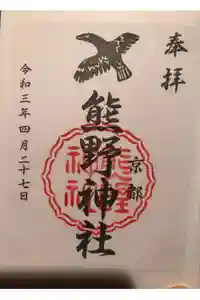 奉拝
京都
熊野神社
令和三年四月二十七日
熊野
神社